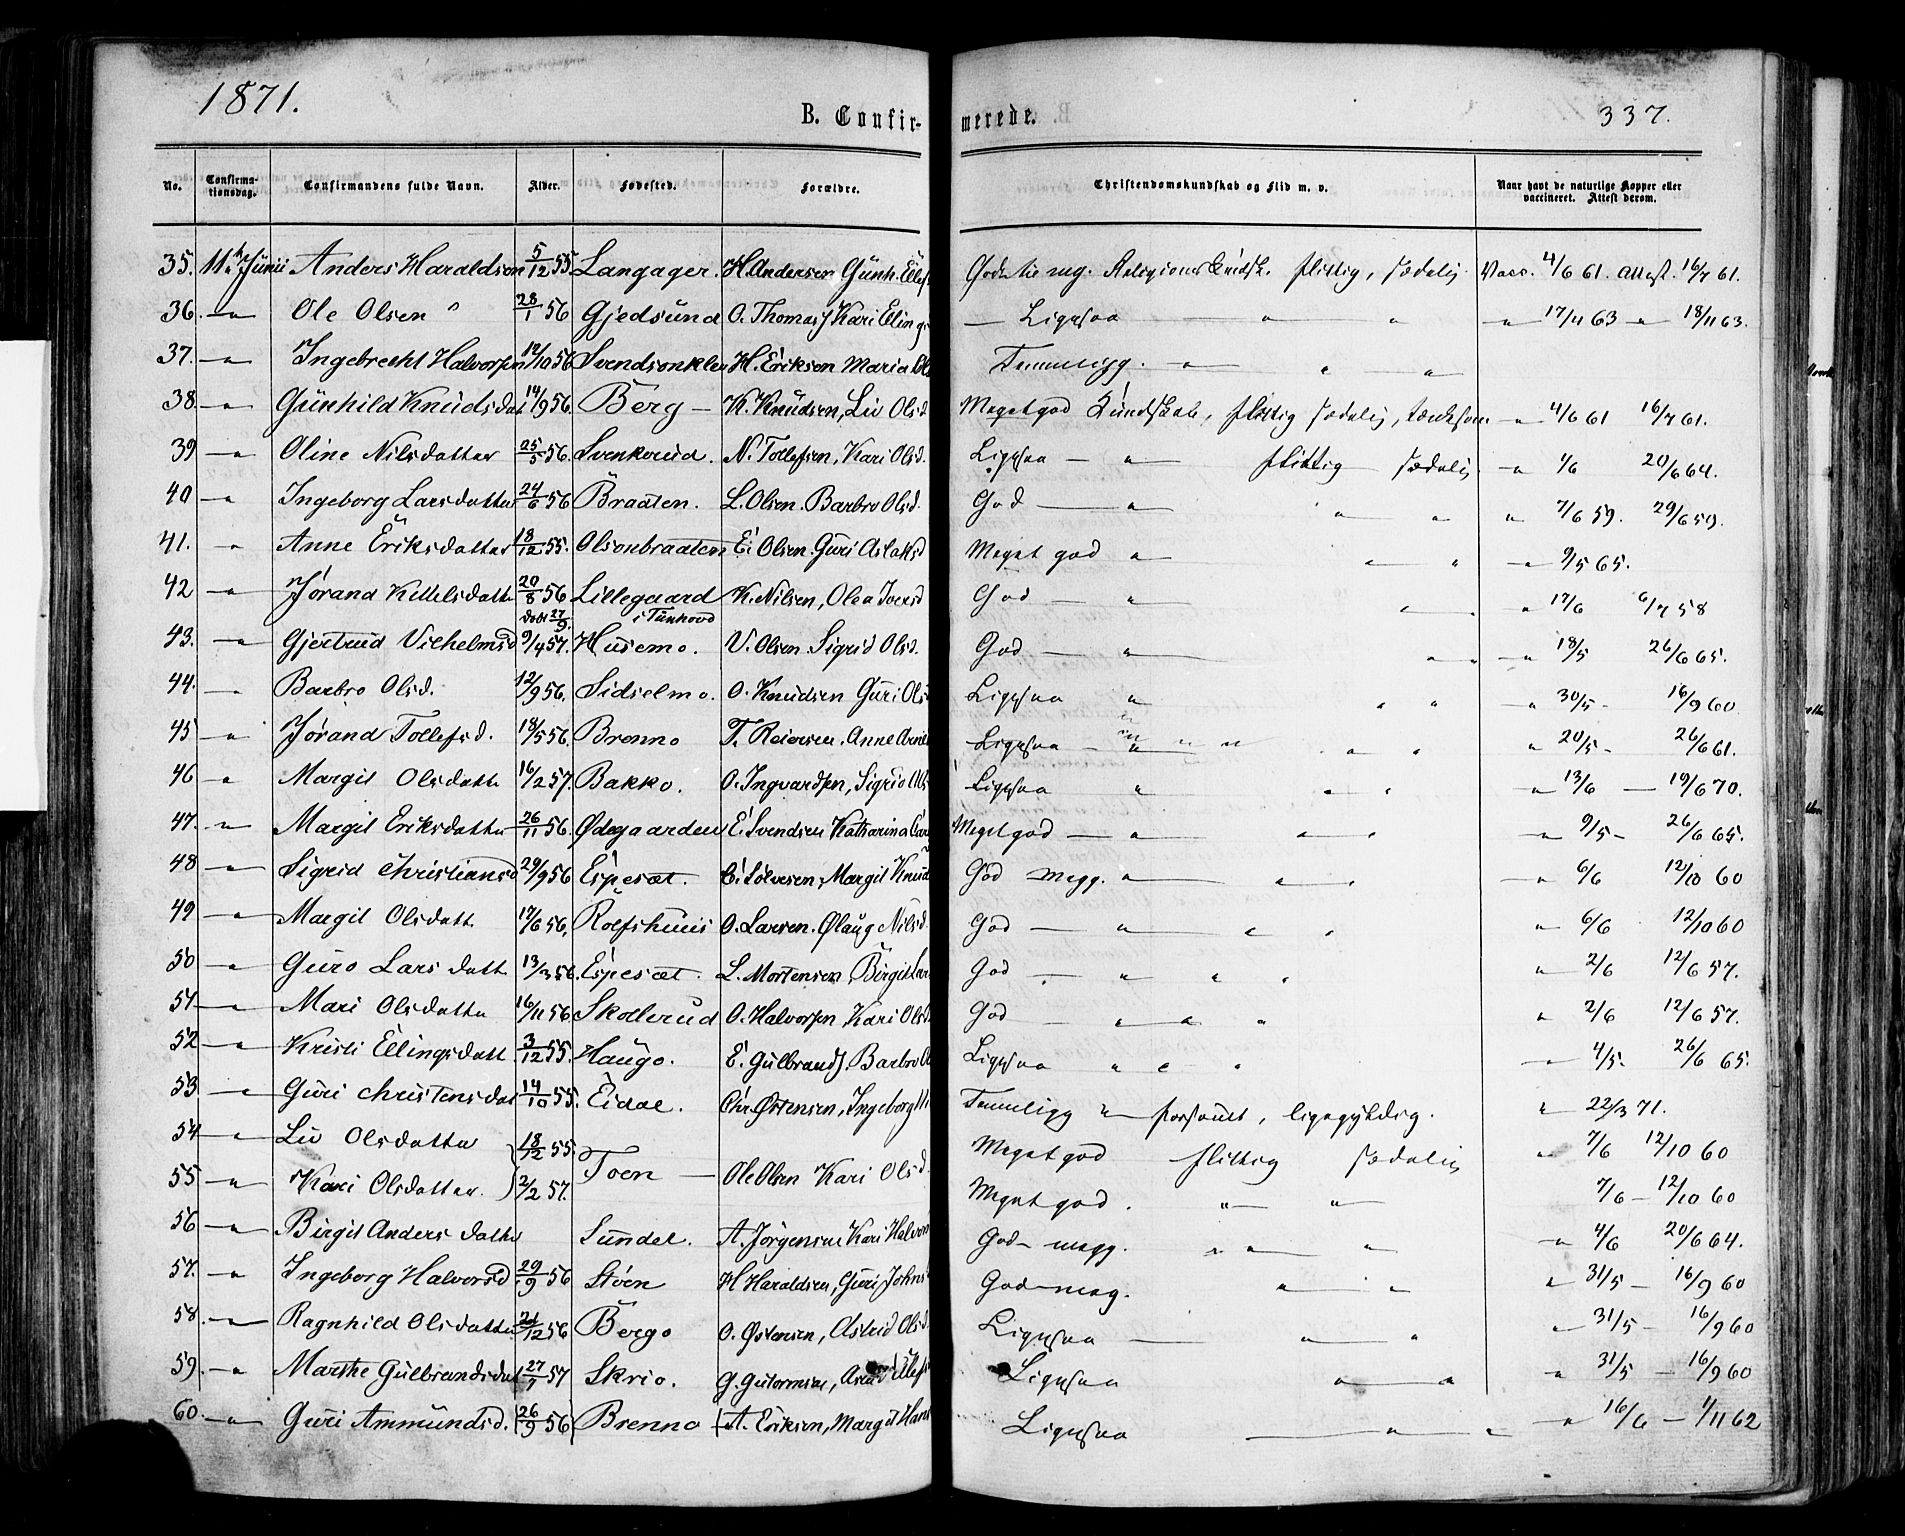 1871.
B. Confir-
merede.
337.
No.
Confirma-
tionsdag.
Confirmandens fulde Navn.
Alder.
Fødested.
Forældre.
Christendomskundskab og Flid m. v.
Naar havt de naturlige Kopper eller
vaccineret. Attest derom.
35. 11te Junii Anders Haraldsen 5/12 55. Langager. H. Andersen Günh. flittig, sædelig Vacc. 4/6 61. Attest. 16/7 61.
36. — " Ole Olsen " 28/1 56 Gjedsünd O. Thomas Kari — Ligesaa " " " 17/11 63 " 18/11 63.
37. — " Ingebrecht Halvorsen 12/10 56 H. Eriksen Maria Temmelig g. " " "
38. — " Günhild Knüdsdat 14/9 56. Berg — K. Knüdsen, Liv Olsd Meget god Kündskab, flittig sædelig, tænksom " 4/6 61 16/7 61.
39 — " Oline Nilsdatter 25/5 56. Svenkerud. N. Tollefsen, Kari Olsd. Ligesaa — " flittig sædelig " 1/6 20/6 64.
40 — " Ingeborg Larsdatter 24/6 56 Braaten. L. Olsen. Barbro Olsd. God — " " " " 7/6 59. 29/6 59.
41. " Anne Eriksdatter 18/12 55. Olsonbraaten E. Olsen. Güri Aslaksd Meget god " " " " 9/5 65.
42 — " Jørand Kittelsdatt 20/8 56 Lillegaard K. Nilsen, Olea Iversd God — " " " " 17/6 6/7 58
døbt 27/9. i Tünhovd
43. — " Gjertrud Vilhelmsd 9/4 57. Hüsemo. V. Olsen Sigrid Olsd. God — " " " " 18/5 26/6 65.
44. — " Barbro Olsd. 12/9 56. Sidselmo. O. Knüdsen Güri Ols Ligesaa " " " " 30/5 - 16/9 60
45 — " Jørand Tollefsd. 18/5 56. Brenno T. Reiersen. Anne Ligesaa — " " " " " 20/5 - 26/6 61.
46 — " Margit Olsdatte 16/2 57. Bakko. O. Ingvardsen, Sigrid Ols Ligesaa " " " " 13/6 — 19/6 70.
47. — " Margit Eriksdatte 26/11 56. Ødegaarden E. Svendsen Katharina Meget god — " " " " 9/5 - 26/6 65.
48 — " Sigrid Christiansd 29/9 56 Espesæt. C. Sølvesen, Margit Knüd God meg g. " " " " 6/6 12/10 60
49 — " Margit Olsdatt 17/6 56. Rolfshuus O. Larsen. Ølaug Nilsd. God — " " " " 6/6 12/10 60
50 — " Guro Larsdatt 13/3 56. Espesæt. L. Mortensen Birgit Lar God — " " " " 2/6 12/6 57.
51 — " Mari Olsdatte 16/11 56 Skollerud O. Halvorsen Kari Olsd. God — " " " " 2/6 12/6 57.
52 — " Kristi Ellingsdatt 3/12 55. Haugo. E. Gülbrands. Barbro O Ligesaa " " " " 4/5 - 26/6 65.
53 — " Güri Christensdat 14/10 55. Eidal. Chr. Østensen, Ingeborg Temmelig g " forsømt, ligegyldig. " 22/3 71.
54 — " Liv Olsdatter 18/12 55 Toen — Ole Olsen Kari Olsd. Meget god flittig sædelig " 7/6 12/10 60
55 — " Kari Olsdatter. 2/2 57. Meget god. " " 7/6 — 12/10 60
56 — " Birgit Andersdatter Sundet. A. Jørgensen Kari Halvors God meg g. " " " " 4/6 20/6 64.
57. — " Ingeborg Halvorsd 29/9 56 Støen H Haraldsen, Güri Johns God meg. " " " 31/5 — 16/9 60
58. — " Ragnhild Olsdatter /12 56 Bergo O. Østensen, Astrid Olsd. Ligesaa — " " " 31/5 — 16/9 60
59. — " Marthe Gülbrandsdat 27/1 57 Skrio. G. Gutormsen, Ligesaa " " " 31/5 — 16/9 60
60. — " Güri Ammundsd. 26/9 56 Brenno A. Eriksen, Margit Hans Ligesaa — " " " 16/6 — 1/11 62